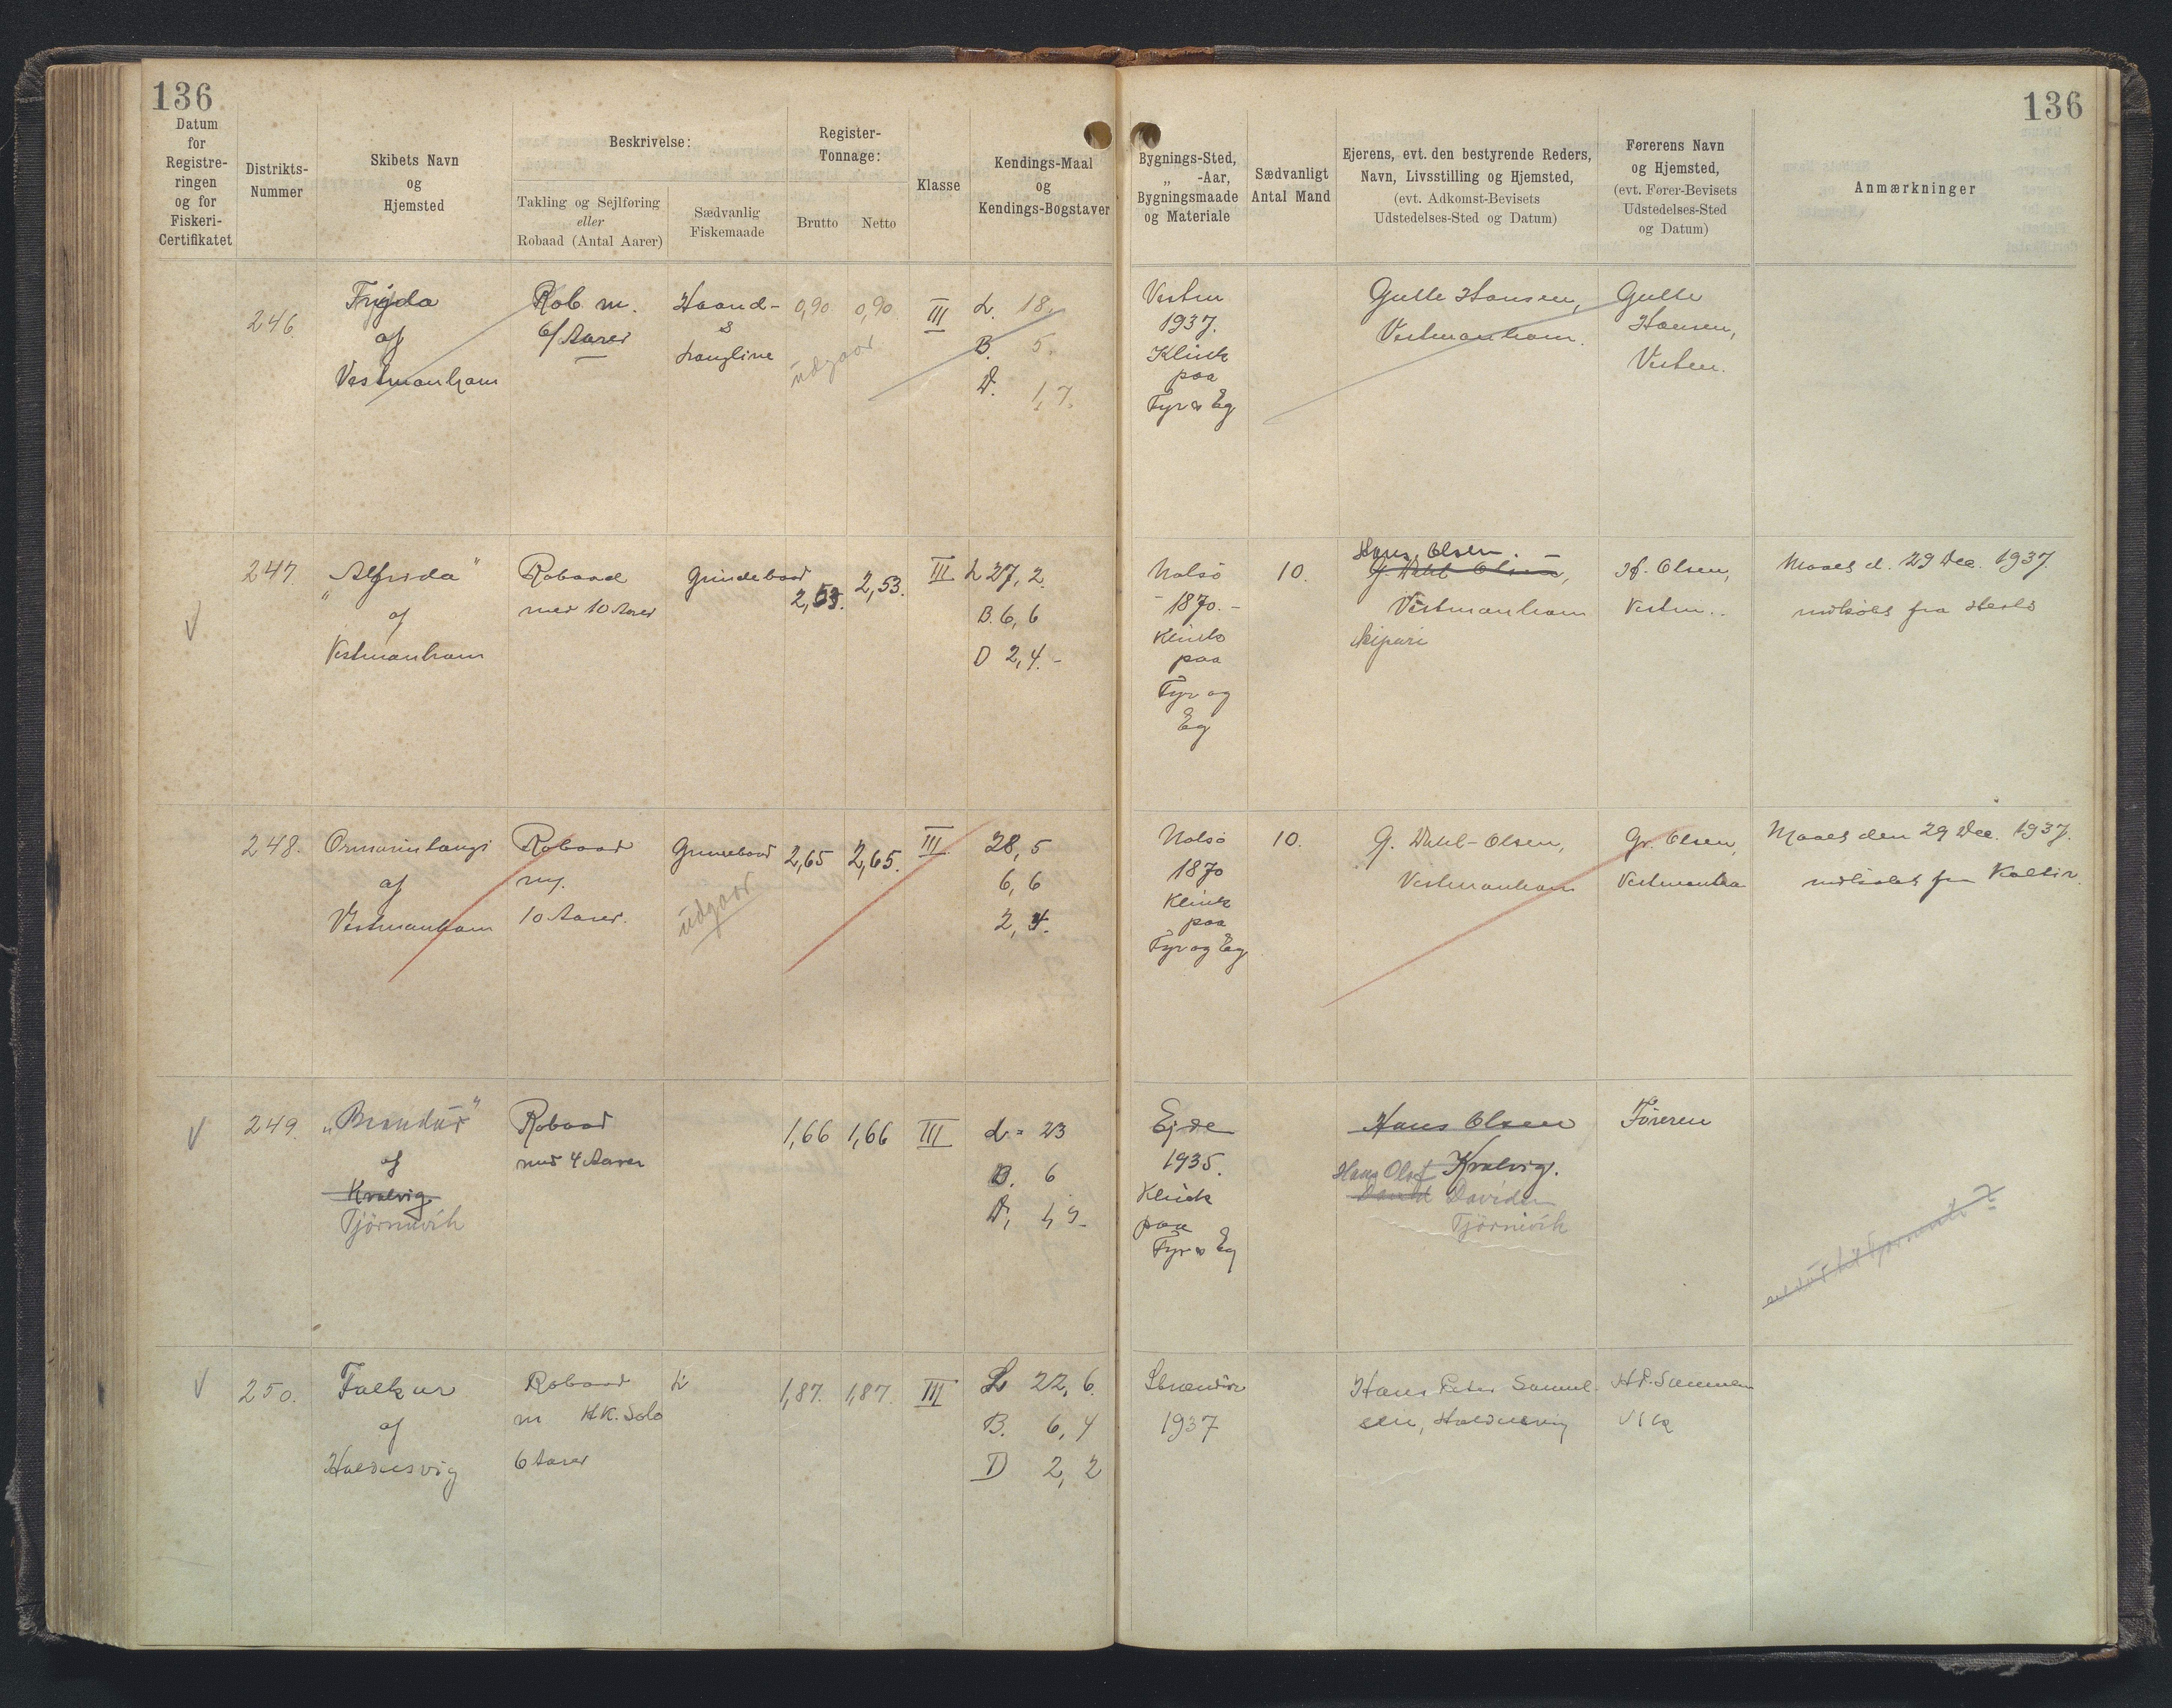 136
Datum
for
Registre-
ringen
og for
Fiskeri-
Certifikatet
Distrikts-
Nummer
Skibets Navn
og
Hjemsted
Beskrivelse:
Takling og Sejlføring
eller
Robaad (Antal Aarer)
Sædvanlig
Fiskemaade
Register-
Tonnage:
Brutto
Netto
Klasse
Kendings-Maal
og
Kendings-Bogstaver
136
Bygnings-Sted,
„ -Aar,
Bygningsmaade
og Materiale
Sædvanligt
Antal Mand
Ejerens, evt. den bestyrende Reders,
Navn, Livsstilling og Hjemsted,
(evt. Adkomst-Bevisets
Udstedelses-Sted og Datum)
Førerens Navn
og Hjemsted,
(evt. Fører-Bevisets
Udstedelses-Sted
og Datum)
Anmærkninger
246
Frýda
af
Vestmanham
Rob m.
6/Aarer
Haand-
&
Langline
0,90
0,90
udgaar
III
L. 18,
B. 5.
D. 1,7.
Vestm
1937.
Klink
paa
Fyr & Eg
Gutte Hansen,
Vestmanham.
Gutte
Hansen,
Vestm.
247
„Alfrida"
af
Vestmanham
Robaad
med 10 Aarer
Grindebaad
2,53.
2,53.
III
L 27,2.
B. 6,6
D 2,4.-
Nolsö
- 1870. -
Klink
paa
Fyr og
Eg
10.
Hans Olsen. -
G. Dahl Olsen,
Vestmanham
H. Olsen,
Vestm..
Maalt d. 29 Dec. 1937.
248.
Ormurinlangi
af
Vestmanham
Robaad
m/.
10 Aarer.
Grindebaad
udgaar
2,65
2,65.
III.
28,5
6,6
2,4.
Nolsö
1870
Klink
paa
Fyr og Eg
10.
G. Dahl-Olsen,
Vestmanham
G. Olsen,
Vestmanha
Maalt den 29 Dec. 1937.
249.
„Brandur"
af
Kvalvig
Tjörnuvik
Robaad
med 4 Aarer
1,66
1,66
III
L = 23
B. 6
D,
Ejde
1935.
Klink
paa
Fyr & Eg
Hans Olsen
Kvalvig.
Hans Olof
Davidsen
Tjörnivik
Föreren
250.
Falkur
af
Haldersvig
Robaad
m HK. Solo
6 Aarer
L
1,87.
1,87.
III
L 22,6.
B. 6,4
D 2,2
Strændur
1937
Hans Peter Samuel-
sen, Haldersvig